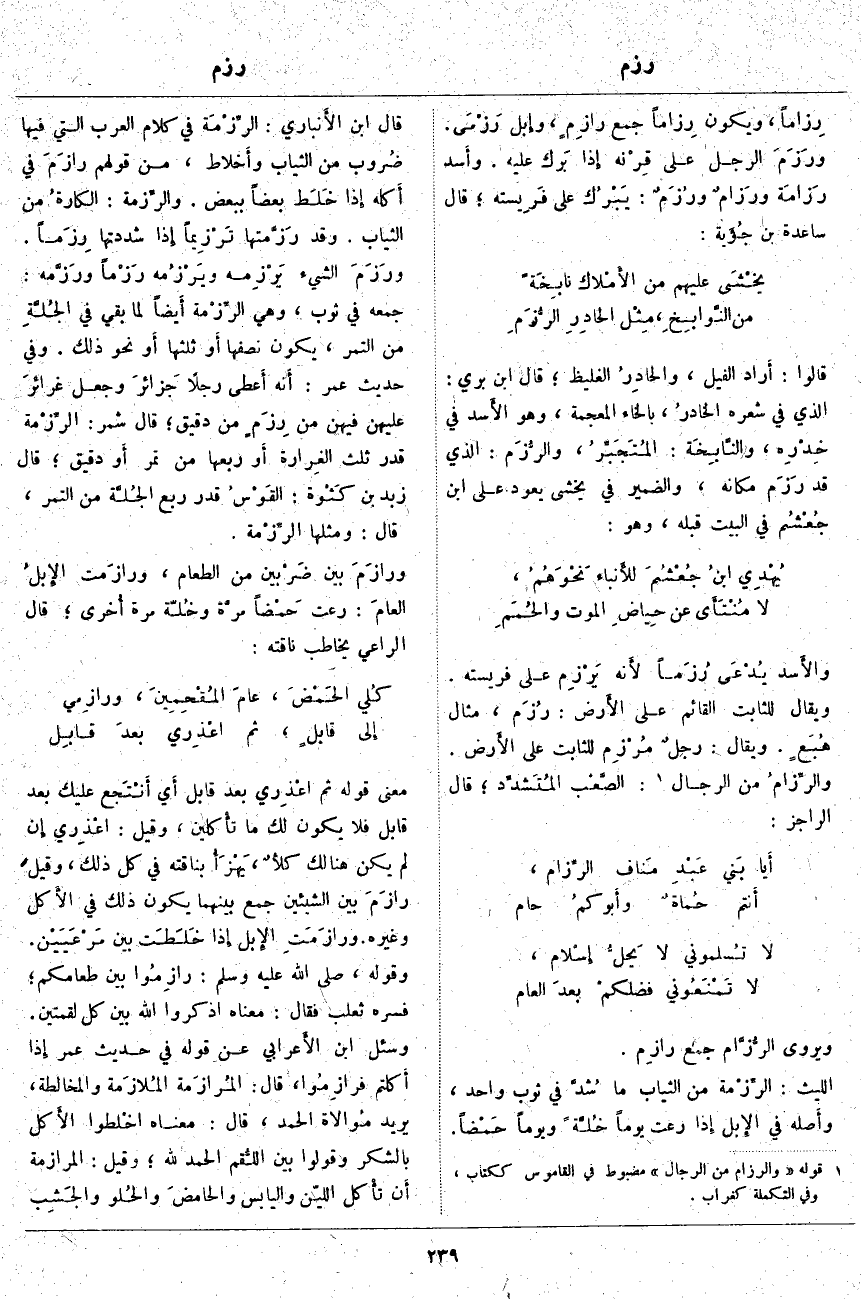 رزم
رزم
رِزاماً، ويكون رِزاماً جمع رازِمٍ، وإبل رَزْمَى.
ورَزَمَ الرجل على قِرْنه إذا بَرك عليه. وأسد
رَزامَة ورَزامٌ ورُزَمٌ: يَبْرُك على فَريسته؛ قال
ساعدة بن جُؤية:
يَخْشَى عليهم من الأَمْلاك نابِخَةً
من النَّوابِخِ، مِثْل الحادِرِ الرُّزَمِ
قالوا: أراد الفيل، والحادِرُ الغليظ؛ قال ابن بري:
الذي في شعره الخادرُ، بالخاء المعجمة، وهو الأسد في
خِدْرِه، والنَّابِخَة: المُتَجَبِّرُ، والرُّزَم: الذي
قد رَزَم مكانه، والضمير في يخشى يعود على ابن
جُعْشُم في البيت قبله، وهو:
يُهْدِي ابنُ جُعْشُمَ للأنباء نَحْوَهُمُ،
لا مُنْتَأَى عن حِياضِ الموت والحُمَمِ
والأسد يُدْعَى رُزَماً لأنه يَرْزِم على فريسته.
ويقال للثابت القائم على الأرض: رُزَم، مثال
هُبَعٍ. ويقال: رجلٌ مُرْزِم للثابت على الأرض.
والرِّزامُ من الرجال ١: الصَّعْب المُتَشدِّد؛ قال
الراجز:
أَيا بَني عَبْدِ مَناف الرِّزام،
أَنتم حُماةٌ وأَبوكمُ حام
لا تُسلموني لا يَحِلُّ إسْلام،
لا تَمْنَعُوني فضلكمْ بعدَ العام
ويروى الرُّزَّام جمع رازِم.
الليث: الرِّزْمة من الثياب ما شُدَّ في ثوب واحد،
وأصله في الإبل إذا رعت يوماً خُلَّةً ويوماً حَمْضاً.
١ قوله «والرزام من الرجال» مضبوط في القاموس ككتاب،
وفي التكملة كغراب.
قال ابن الأَنباري: الرِّزْمَة في كلام العرب التي فيها
ضُروب من الثياب وأخلاط، من قولهم رازَمَ في
أكله إذا خَلَط بعضاً ببعض. والرِّزمة: الكارةُ من
الثياب. وقد رَزَّمتها تَرْزِيماً إذا شددتها رِزَماً.
ورَزَمَ الشيء يَرْزِمه ويَرْزُمه رَزْماً ورَزَّمه:
جمعه في ثوب، وهي الرِّزْمة أيضاً لما بقي في الجُلَّةِ
من التمر، يكون نصفها أو ثلثها أو نحو ذلك. وفي
حديث عمر: أنه أعطى رجلًا جَزائرَ وجعل غَرائرَ
عليهن فيهن من رِزَمٍ من دقيق؛ قال شمر: الرِّزْمة
قدر ثلث الغِرارة أو ربعها من تمر أو دقيق؛ قال
زيد بن كَثْوة: القَوْسُ قدر ربع الجُلَّة من التمر،
قال: ومثلها الرِّزْمة.
ورازَمَ بين ضَرْبين من الطعام، ورازَمت الإبلُ
العامَ: رعت حَمْضاً مرّة وخُلّة مرة أُخرى؛ قال
الراعي يخاطب ناقته:
كُلي الحَمْضَ، عامَ المُقْحِمِينَ، ورازِمي
إلى قابلٍ، ثم اعْذِري بعدَ قابِل
معنى قوله ثم اعْذِري بعد قابل أي أَنْتَجع عليك بعد
قابل فلا يكون لك ما تأكلين، وقيل: اعْذِري إن
لم يكن هنالك كلأٌ، يَهْزَأُ بناقته في كل ذلك، وقيل
رازَمَ بين الشيئين جمع بينهما يكون ذلك في الأكل
وغيره. ورازَمَتِ الإبل إذا خَلَطَت بين مَرْعَيَيْن.
وقوله، صلى الله عليه وسلم: رازِمُوا بين طعامكم؛
فسره ثعلب فقال: معناه اذكروا الله بين كل لقمتين.
وسئل ابن الأَعرابي عن قوله في حديث عمر إذا
أكلتم فرازِمُوا، قال: المُرازَمَة المُلازَمة والمخالطة،
يريد مُوالاة الحمد، قال: معناه اخْلطوا الأَكل
بالشكر وقولوا بين اللُّقم الحمد لله؛ وقيل: المرازمة
أن تأكل الليّن واليابس والحامضَ والحُلو والجَشِب
٢٣٩